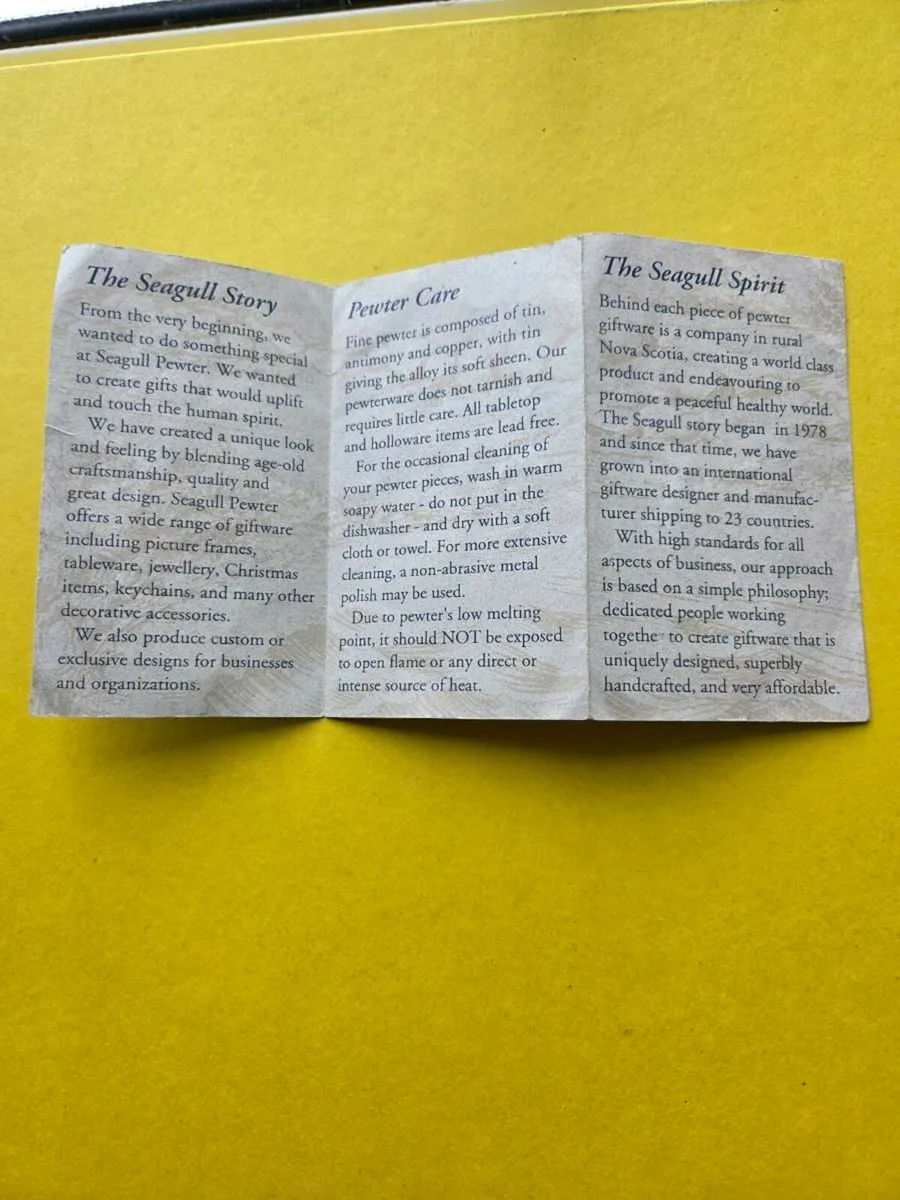 The Seagull Story
From the very beginning, we
wanted to do something special
at Seagull Pewter. We wanted
to create gifts that would uplift
and touch the human spirit.
We have created a unique look
and feeling by blending age-old
craftsmanship, quality and
great design. Seagull Pewter
offers a wide range of giftware
including picture frames,
tableware, jewellery, Christmas
items, keychains, and many other
decorative accessories.
We also produce custom or
exclusive designs for businesses
and organizations.
Pewter Care
Fine pewter is composed of tin,
antimony and copper, with tin
giving the alloy its soft sheen. Our
pewterware does not tarnish and
requires little care. All tabletop
and holloware items are lead free.
For the occasional cleaning of
your pewter pieces, wash in warm
soapy water - do not put in the
dishwasher - and dry with a soft
cloth or towel. For more extensive
cleaning, a non-abrasive metal
polish may be used.
Due to pewter's low melting
point, it should NOT be exposed
to open flame or any direct or
intense source of heat.
The Seagull Spirit
Behind each piece of pewter
giftware is a company in rural
Nova Scotia, creating a world class
product and endeavouring to
promote a peaceful healthy world.
The Seagull story began in 1978
and since that time, we have
grown into an international
giftware designer and manufac-
turer shipping to 23 countries.
With high standards for all
aspects of business, our approach
is based on a simple philosophy;
dedicated people working
together to create giftware that is
uniquely designed, superbly
handcrafted, and very affordable.